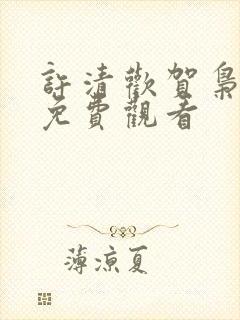 許清歡賀梟
免費觀看
薄涼夏